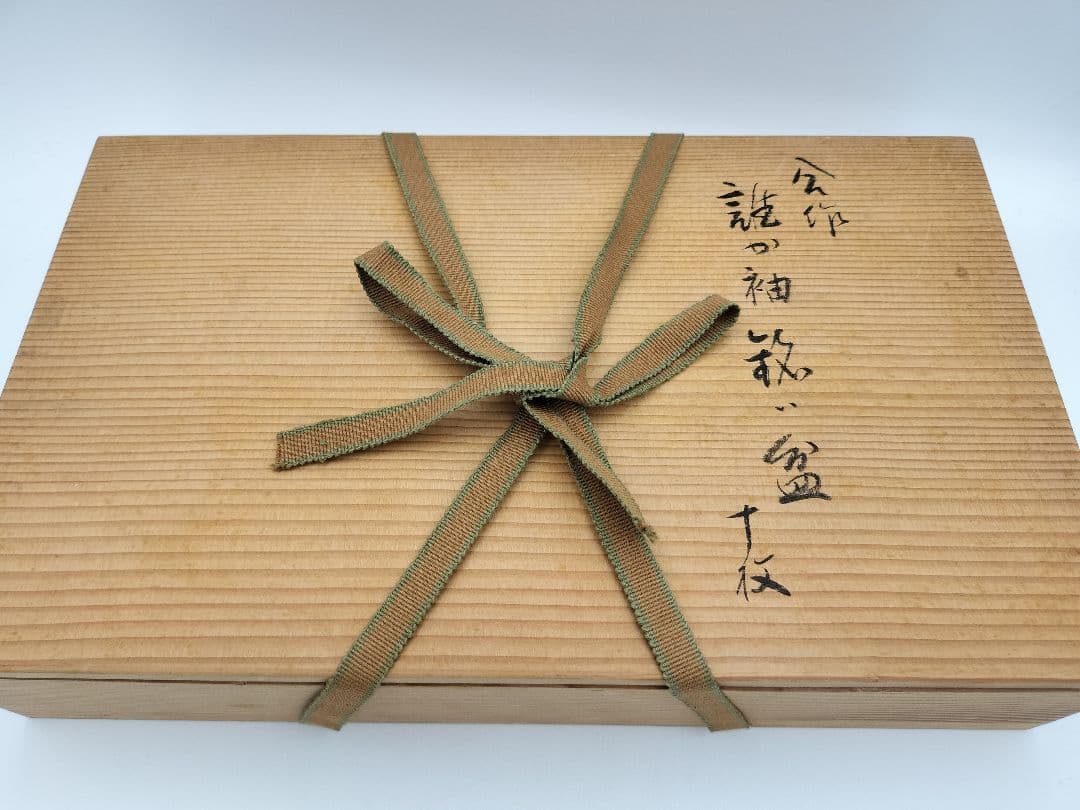 合作
誰か袖銘々盆
十枚